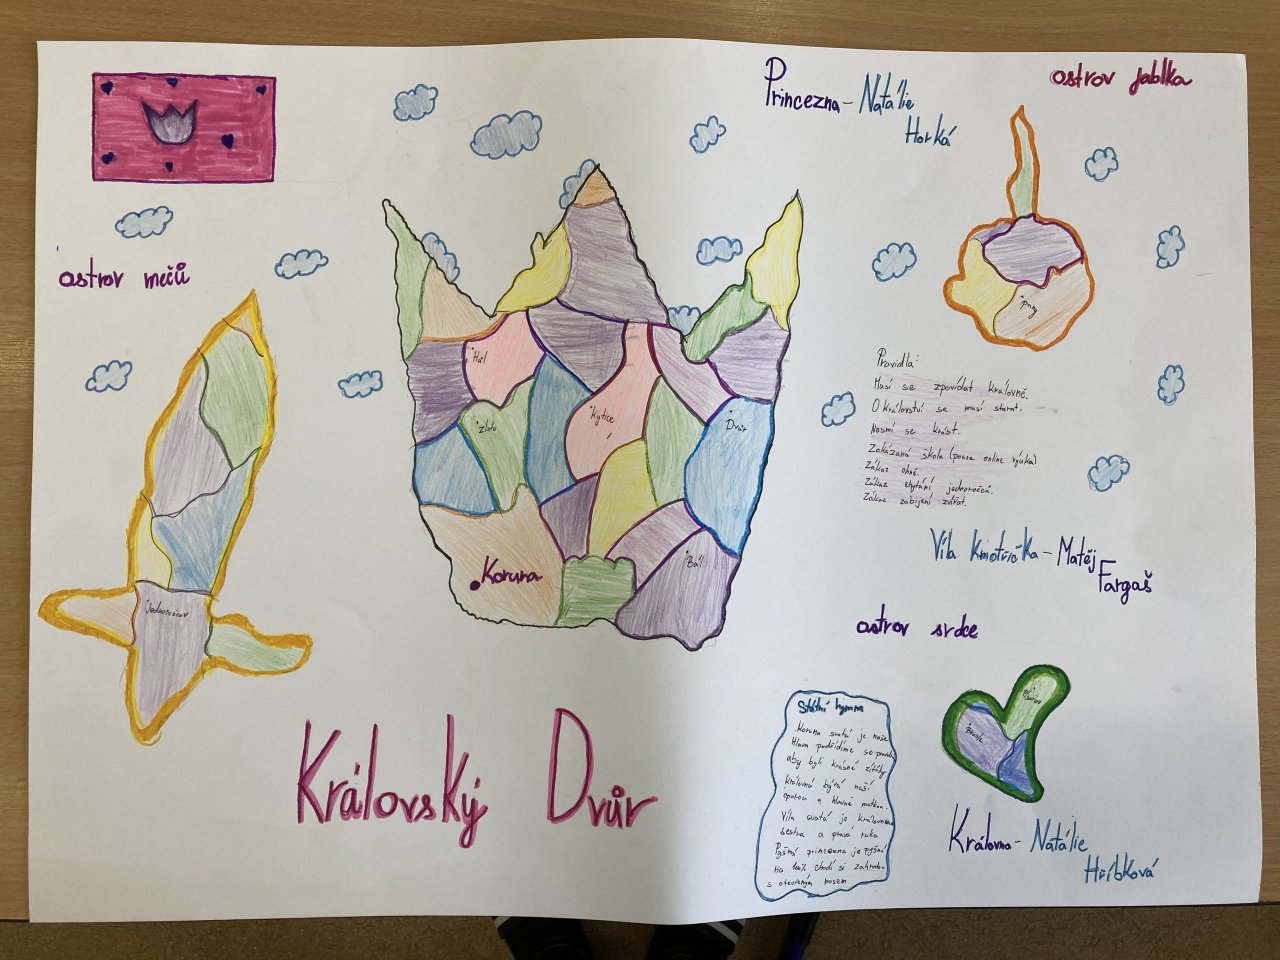 Princezna - Natálie
Horká
ostrov jablka
ostrov mečů
Hůl
Zlato
Kytice
Dvůr
Koruna
Bál
Jednorožcov
Pravidla:
Musí se zpovídat královně.
O království se musí starat.
Nesmí se krást.
Zakázaná škola (pouze online výuka)
Zákaz ohně.
Zákaz chytání jednorožců.
Zákaz zabíjení zvířat.
Víla Kmotřička - Matěj
Fargaš
ostrov srdce
Státní hymna
Koruna svatá je naše
Hlava podřídíme se
aby byli krásné zítřky
Královna bývá naší
oporou a hlavně matkou.
Víla svatá je královnina
sestra a pravá ruka
Pyšná princezna je pyšná
na 100% chodí si zahradou
s otevřeným nosem
Královna - Natálie
Hříbková
Královský Dvůr